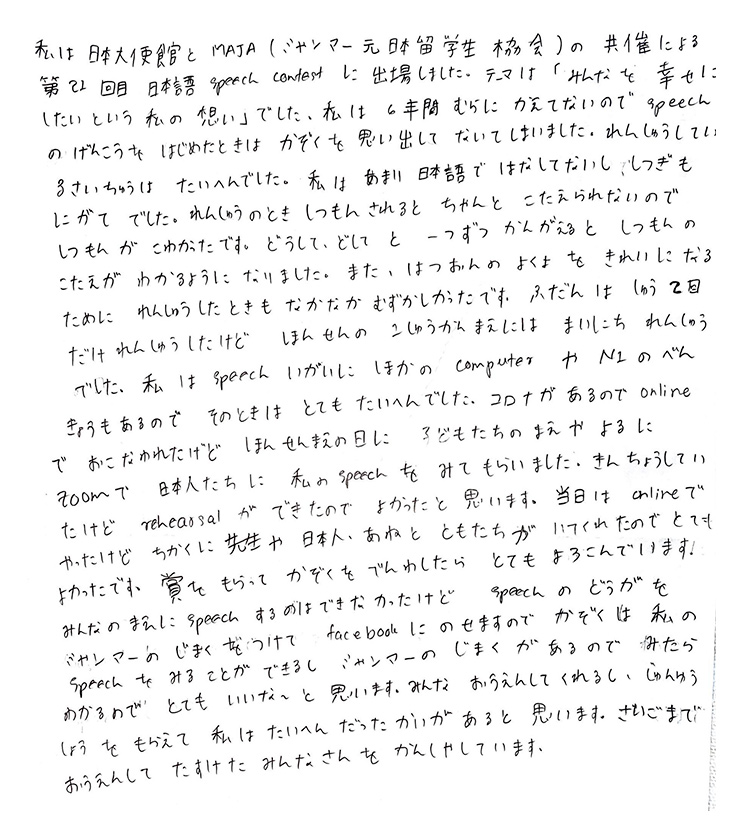 私は 日本大使館と MAJA (ミャンマー元日本留学生 協会)の 共催による
第21回目 日本語 speech contest に 出場しました。テーマは「みんなを 幸せに
したいという 私の 想い」でした、私は 6年間 むらに かえてないので speech
の げんこうを はじめたときは かぞくを 思い出して ないてしまいました。れんしゅうしてい
るさいちゅうは たいへんでした。私は あまり 日本語で はなしてないし、しつぎも
にがて でした。れんしゅうのとき しつもん されると ちゃんと こたえられないので
しつもんが こわかたです。どうして、どして と 一つずつ かんがえると しつもんの
こたえが わかるように なりました。また、はつおんの よくよ を きれいに なる
ために れんしゅうしたときも なかなか むずかしかったです。ふだんは しゅう2回
だけ れんしゅうしたけど ほんせんの 1しゅうかん まえには まいにち れんしゅう
でした、私は speech いがいに ほかの computer や N1のべん
きょうもあるので そのときは とても たいへんでした、コロナが あるので online
で おこなわれたけど ほんせんまえの日に 子どもたちの まえや よるに
zoomで 日本人たちに 私の speech を みて もらいました、きんちょうしてい
たけど rehearsal が できたので よかったと 思います。当日は onlineで
やったけど ちかくに 先生や 日本人、あねと ともたちが いてくれたので とても
よかったです、賞を もらって かぞくを でんわしたら とても よろこんでいます!
みんなの まえに speech するのはできなかったけど speech の どうがを
ミャンマーの じまくをつけて facebook に のせますので かぞくは 私の
speech を みることが できるし ミャンマーの じまくが あるので みたら
わかるので とても いいな〜と 思います、みんな おうえんしてくれるし、じゅんゆう
しょうをもらえて 私は たいへん だった かいが あると 思います。さいごまで
おうえんして たすけた みんなさんを かんしゃしています、